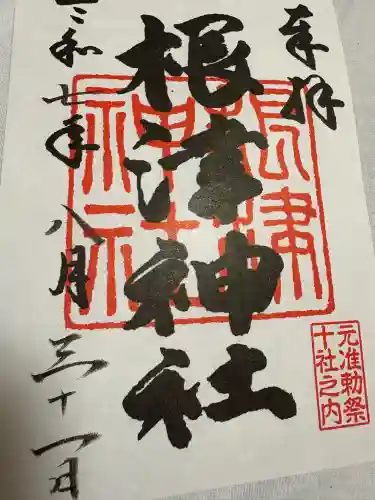 奉拝
元准勅祭
十社之内
根津神社
根津
神社
令和七年八月三十一日